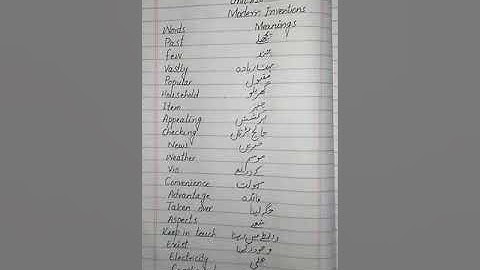 Modern Inventions
Words Meanings
Past
Few چند
Vastly
Popular مقبول
Household گھریلو
Item چیز
Appealing پرکشش
Checking جانچ پڑتال
News خبریں
Weather موسم
Via کے ذریعے
Convenience سہولت
Advantage فائدہ
Taken over جگہ لینا
Aspects
Keep in touch رابطے میں رہنا
Exist وجود رکھنا
Electricity بجلی